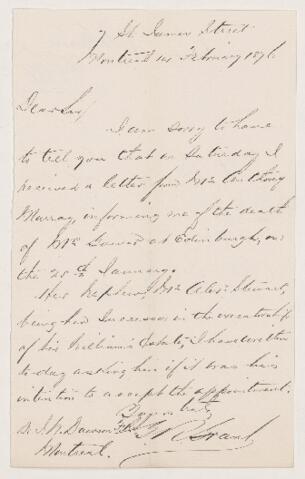 St. James Street
Montreal 14 February 1876
Dear Sir,
I am sorry to have
to tell you that on Saturday I
received a letter from Mr
Murray, informing me of the death
of Mr at Edinburgh, on
the 25th January.
Her Nephew, Mr Alexr Stewart,
being her Successor in the
of Sir William's I have written
to-day asking him if it was his
intention to accept the appointment.
Yours truly
Dr J. W. Dawson
Montreal.